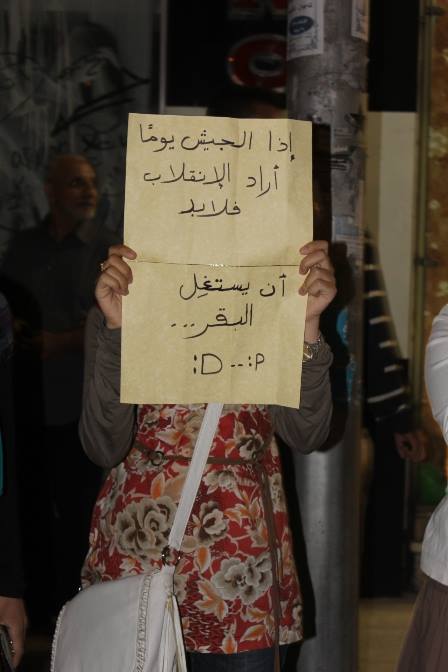 إذا الجيش يومًا
أراد الإنقلاب
فلابد
أن يستغِل
البقر...
:D --:P